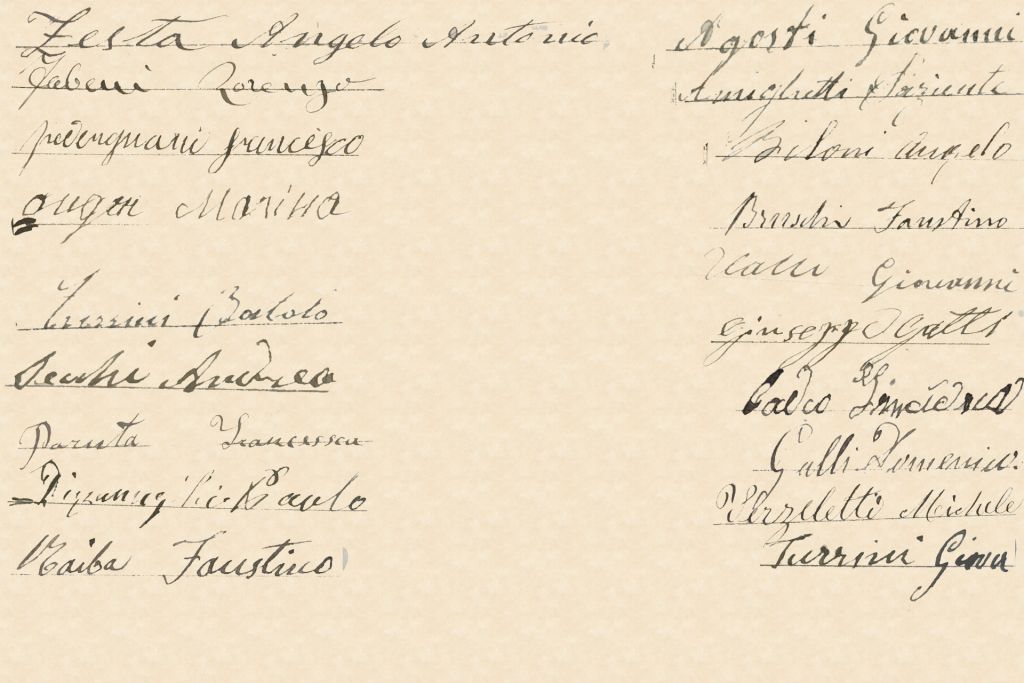 Zesta Angelo Antonio
Tabeni Lorenzo
pedergnani francesco
onger Marina
Turrini Batolo
Secchi Andrea
Paruta Francesca
Paulo
Raiba Faustino
Agosti Giovanni
Amighetti
Biloni angelo
Bruschi Faustino
Galli Giovanni
Giusepp Gatti
Galli Domenico
Verzeletti Michele
Turrini Giova